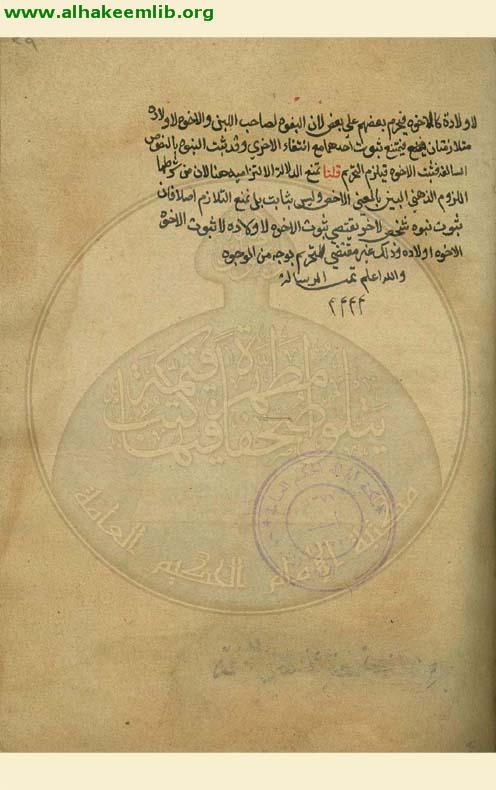 www.alhakeemlib.org
لاولادة كالاخوة فيحرم بعضهم على بعض لان البنوة لصاحب اللبن والاخوة لاولاده
متلازمتان يمتنع ثبوت احدهما مع انتفاء الاخرى وقد ثبت البنوة بالنص
السالف فثبت الاخوة فيلزم التحريم قلنا نمنع الدلالة الالتزامية هنا لان من شرطها
اللزوم الذهني البين بالمعنى الاخص وليس بثابت بل نمنع التلازم اصلا فان
ثبوت بنوة شخص لاخر يقتضي ثبوت الاخوة لاولاده لا ثبوت الاخوة
الاخوة اولاده وذلك غير مقتضي للتحريم بوجه من الوجوه
والله اعلم تمت الرسالة
يتلوا صحفا مطهرة فيها كتب قيمة
مكتبة الإمام الحكيم العامة